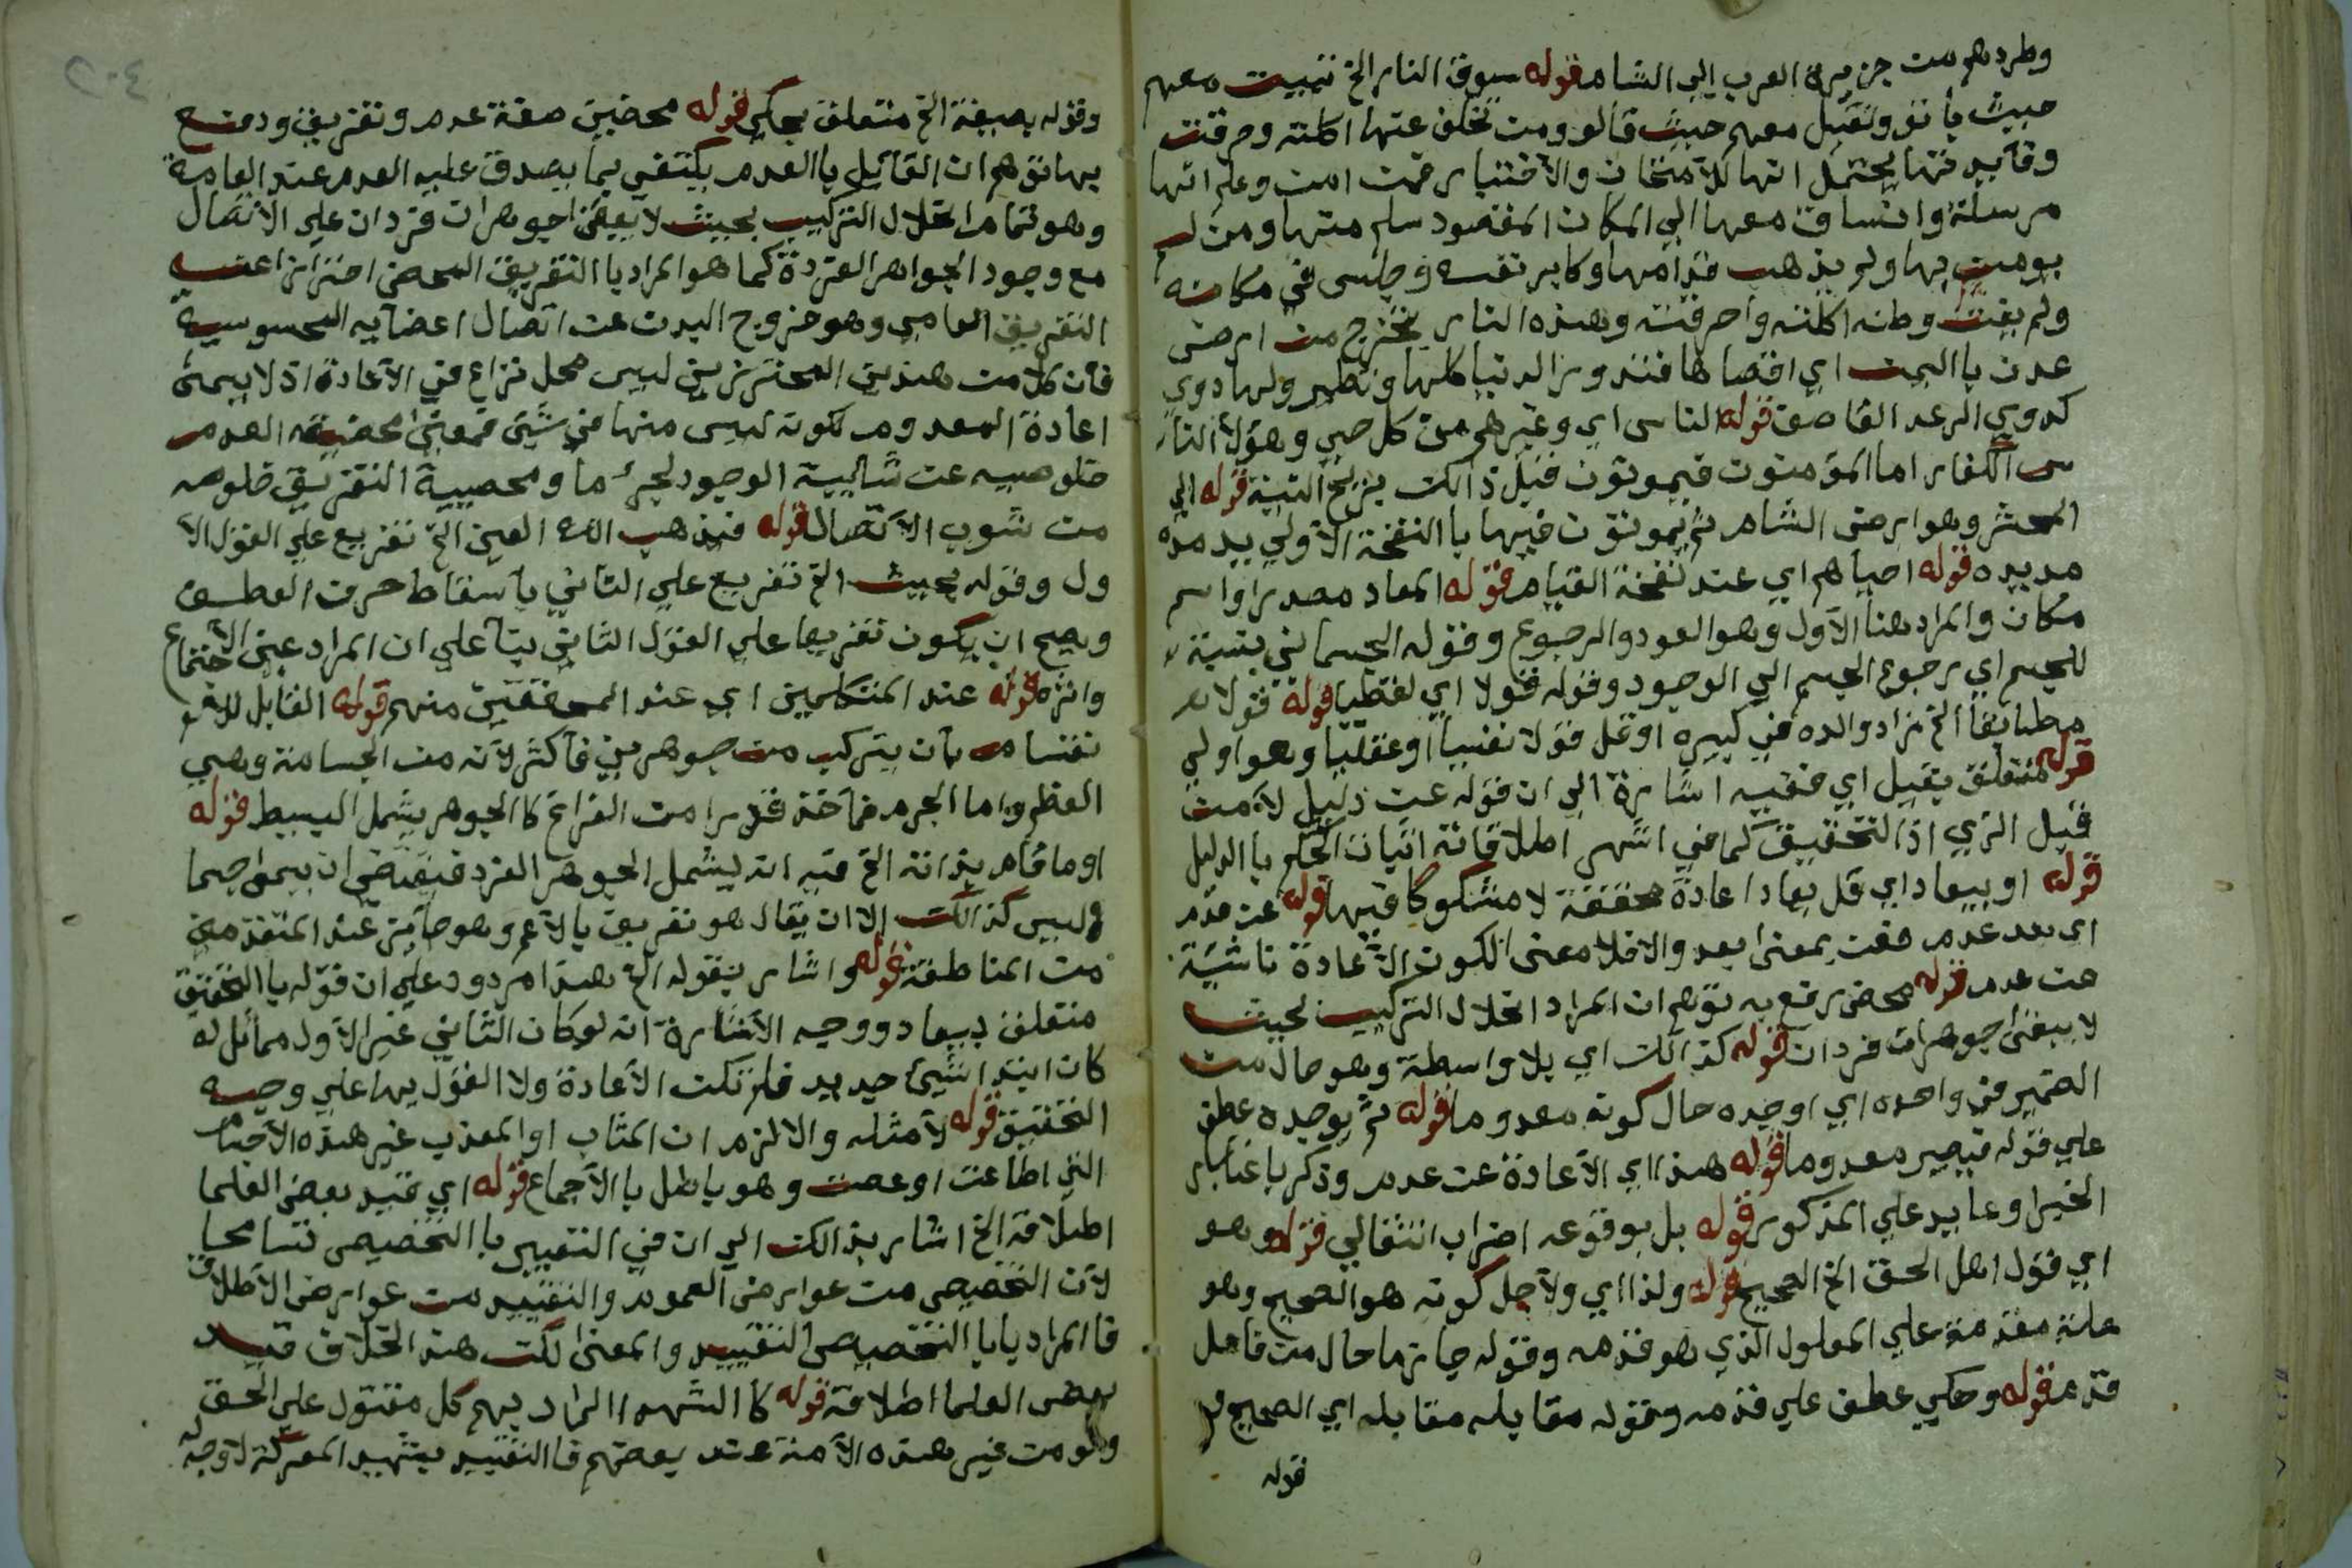 وطردهم من جزيرة العرب الي الشام قوله سوق النار الخ تبيت معهم
حيث باتو وتقيل معهم حيث قالو ومن تخلف عنها اكلته وحرقت
وفايدتها يحتمل انها للامتحان والاختبار فمن امن وعلم انها
مرسلة وانساق معها الي المكان المقصود سلم منها ومن لم
يومن بها ولم يذهب قدامها وكابر نفسه وجلس في مكانه
ولم يفت وطنه اكلته واحرقته وهذه النار تخرج من ارض
عدن باليمن اي اقصاها فتدور الدنيا كلها وتطير ولها دوي
كدوي الرعد القاصف قوله الناس اي وغيرهم من كل حي وهؤلا النا
س الكفار اما المؤمنون فيموتون قبل ذالك بريح اللينة قوله الي
المحشر وهو ارض الشام ثم يموتون فيها با النفخة الاولي بعد مدة
مديده قوله احياهم اي عند نفخة القيام قوله المعاد مصدر او اسم
مكان والمراد هنا الاول وهو العود والرجوع وقوله الجسماني بنسبة
للجسم اي رجوع الجسم الي الوجود وقوله قولا اي لفظيا قوله قولا
مطابقا الخ زاد والده في كبيره او قل قولا نفسيا او عقليا وهو اولي
قوله متعلق بقيل اي ففيه اشارة الي ان قوله عن دليل لا من
قبيل الزي اذ التحقيق كما في اشهر اطلاقاته اثبات الحكم با الدليل
قوله او بيعاد اي قل يعاد اعادة محققة لا مشكوكا فيها قوله عن عدم
اي بعد عدم فعن بمعنا بعد والا فلا معني لكون الاعادة ناشية
عن عدم قوله محض رفع به توهم ان المراد انحلال التركيب بحيث
لا يبقي جوهران فردان قوله كذالك اي بلا واسطة وهو حال من
الضمير في واحده اي اوجده حال كونه معدوما قوله ثم يوجده عطف
علي قوله فيصير معدوما قوله هذا اي الاعادة عن عدم وذكر باعتبار
الخبر او عايد علي المذكور قوله بل بوقوعه اضراب انتقالي قوله وهو
اي قول اهل الحق الخ الصحيح قوله ولذا اي ولاجل كونه هو الصحيح وهو
علة مقدمة علي المعلول الذي هو قدمه وقوله جازما حال من فاعل
قدم قوله وحكي عطف علي قدمه وقوله مقابله مقابله اي الصحيح
قوله
وقوله بصيغة الخ متعلق بحكي قوله محضين صفة عدم وتفريق ودفع
بها توهم ان القايل با العدم يكتفي بما يصدق عليه العدم عند العامة
وهو تمام انحلال التركيب بحيث لا يبقي جوهران فردان علي الاتصال
مع وجود الجواهر الفردة كما هو المراد با التفريق المحض احترازا عن
التفريق العامي وهو خروج البدن عن اتصال اعضايه المحسوسية
فان كلا من هذين المحترزين ليس محل نزاع في الاعادة اذ لا يسمي
اعادة المعدوم لكونه ليس منها في شئ فمعني محضية العدم
خلوصيه عن شايبة الوجود لجزء ما ومحضيية التفريق خلوصه
من شوب الاتصال قوله فيذهب الله العين الخ تفريع علي القول الا
ول وقوله بحيث الخ تفريع علي الثاني باسقاط حرف العطف
ويصح ان يكون تفريعا علي القول الثاني بنا علي ان المراد عين الاجتماع
واثره قوله عند المتكلمين اي عند المحققين منهم قوله القابل للا
نقسام بان يتركب من جوهرين فاكثر لانه من الجسامة وهي
العظم واما الجرم فماخذ قدرا من الفراغ كا الجوهر يشمل البسيط قوله
او ما قام بذاته الخ فيه انه يشمل الجوهر الفرد فيقتضي ان يسمي جسما
وليس كذالك الا ان يقال هو تعريف بالاعم وهو جايز عند المتقدمين
من المناطقة قوله واشار بقوله الخ هذا مردود علي ان قوله با التحقيق
متعلق بيعاد ووجه الاشارة انه لو كان الثاني غير الاول مماثل له
كان ابتدا شيئ جديد فلم تكن الاعادة ولا القول بها علي وجه
التحقيق قوله لا مثله والا لزم ان المثاب او المعذب غير هذه الاجسام
التي اطاعت او عصت وهو باطل با الاجماع قوله اي قيد بعض العلما
اطلاقه الخ اشار بذالك الي ان في التعبير با التخصيص تسامحا
لان التخصيص من عوارض العموم والتقييد من عوارض الاطلاق
فا المراد با التخصيص التقييد والمعني لكن هذ الخلاف قيد
بعض العلما اطلاقه قوله كا الشهدا المراد بهم كل مقتول علي الحق
ولو من غير هذه الامة عند بعضهم فا التقييد بشهيد المعركة لا وجه له